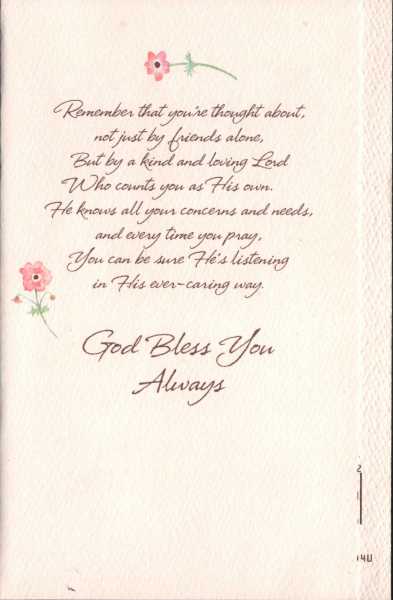 Remember that you're thought about,
not just by friends alone,
But by a kind and loving Lord
Who counts you as His own.
He knows all your concerns and needs,
and every time you pray,
You can be sure He's listening
in His ever-caring way.
God Bless You
Always